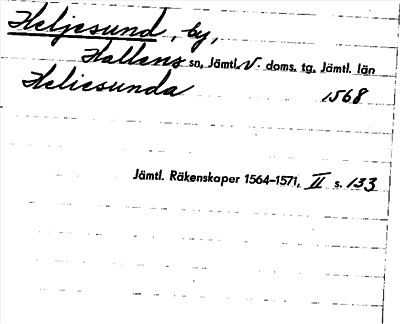 Heljesund, by,
Hallens sn, Jämtl. V. doms. tg. Jämtl. län
Heliesunda 1568
Jämtl. Räkenskaper 1564-1571, II s. 133